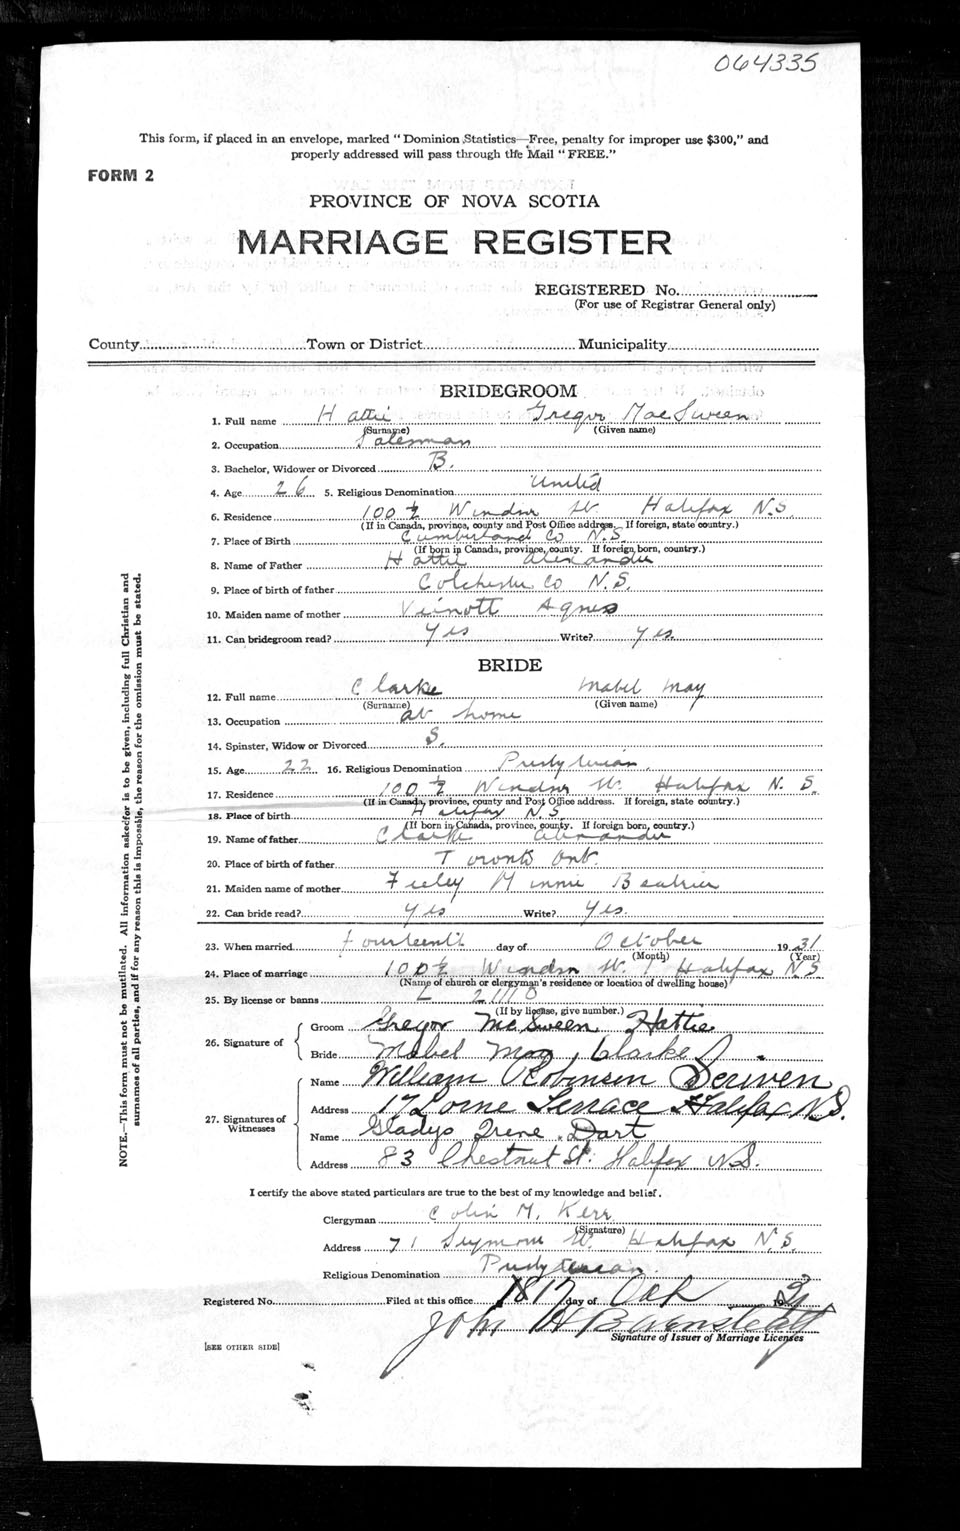 064335
This form, if placed in an envelope, marked "Dominion Statistics—Free, penalty for improper use $300," and
properly addressed will pass through the Mail "FREE."
FORM 2
PROVINCE OF NOVA SCOTIA
MARRIAGE REGISTER
REGISTERED No.
(For use of Registrar General only)
County Town or District Municipality
BRIDEGROOM
1. Full name Hattie Gregor MacSween
(Surname) (Given name)
2. Occupation Salesman
3. Bachelor, Widower or Divorced B.
4. Age 26 5. Religious Denomination United
6. Residence 100½ Windsor St. Halifax N.S.
(If in Canada, province, county and Post Office address. If foreign, state country.)
7. Place of Birth Cumberland Co N.S.
(If born in Canada, province, county. If foreign born, country.)
8. Name of Father Hattie Alexander
9. Place of birth of father Colchester Co N.S.
10. Maiden name of mother Agnes
11. Can bridegroom read? Yes Write? Yes.
BRIDE
12. Full name Clarke Mabel May
(Surname) (Given name)
13. Occupation at home
14. Spinster, Widow or Divorced S.
15. Age 22 16. Religious Denomination Presbyterian.
17. Residence 100½ Windsor St. Halifax N.S.
(If in Canada, province, county and Post Office address. If foreign, state country.)
18. Place of birth Halifax N.S
(If born in Canada, province, county. If foreign born, country.)
19. Name of father Clarke Alexander
20. Place of birth of father Toronto Ont.
21. Maiden name of mother Minnie Beatrice
22. Can bride read? Yes Write? Yes.
23. When married fourteenth day of October 1931
(Month) (Year)
24. Place of marriage 100½ Windsor St. Halifax N.S
(Name of church or clergyman's residence or location of dwelling house)
25. By license or banns L
(If by license, give number.)
26. Signature of
Groom Gregor McSween Hattie.
Bride Mabel May Clarke.
27. Signatures of Witnesses
Name William Robinson Scriven
Address 17 Lorne Terrace Halifax N.S.
Name Gladys Irene Dart
Address 83 Chestnut St. Halifax N.S.
I certify the above stated particulars are true to the best of my knowledge and belief.
Clergyman Colin M. Kerr
(Signature)
Address 71 Seymour St. Halifax N.S.
Religious Denomination Presbyterian.
Registered No. Filed at this office day of 1931
John H Barnstead
Signature of Issuer of Marriage Licenses
[SEE OTHER SIDE]
NOTE.—This form must not be mutilated. All information asked for is to be given, including full Christian and
surnames of all parties, and if for any reason this is impossible, the reason for the omission must be stated.